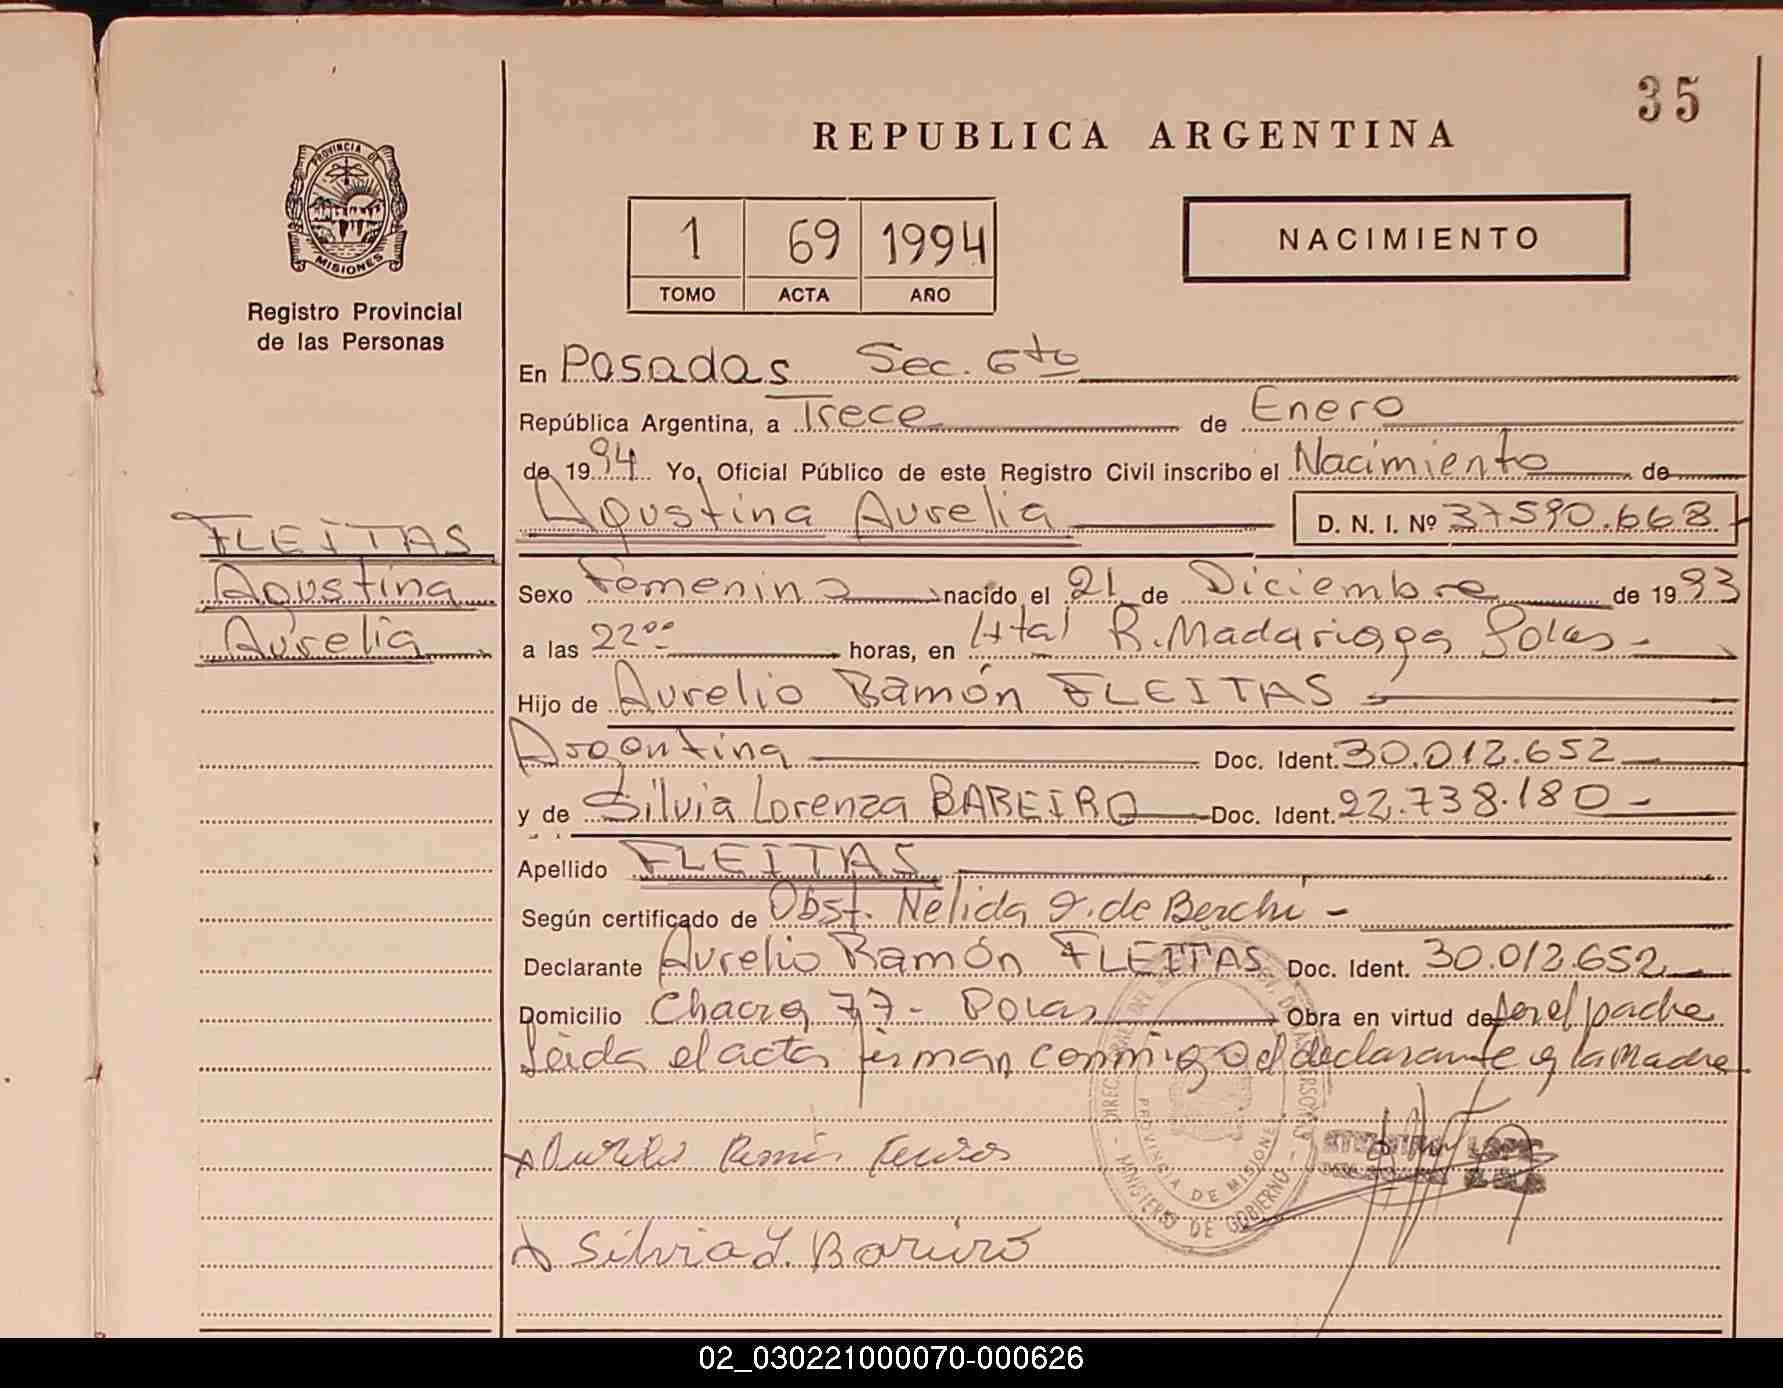 35
REPUBLICA ARGENTINA
PROVINCIA DE
MISIONES
Registro Provincial
de las Personas
1 69 1994
TOMO ACTA AÑO
NACIMIENTO
En Posadas Sec. 6to
República Argentina, a Trece de Enero
de 1994 Yo, Oficial Público de este Registro Civil inscribo el Nacimiento de
Agustina Aurelia D. N. I. Nº 37590.668
FLEITAS
Agustina
Aurelia
Sexo Femenino nacido el 21 de Diciembre de 1993
a las 22ºº horas, en Htal R. Madariaga Sdas
Hijo de Aurelio Ramón FLEITAS
Argentina Doc. Ident. 30.012.652
y de Silvia Lorenza BAREIRO Doc. Ident. 22.738.180 -
Apellido FLEITAS
Según certificado de Obst. Nelida I. de Berchi -
Declarante Aurelio Ramón FLEITAS Doc. Ident. 30.012.652
Domicilio Chacra 77 - Pdas Obra en virtud de ser el padre
Leida el acta firman conmigo el declarante y la Madre
Aurelio Ramón
Silvia L. Bareiro
PROVINCIA DE MISIONES
MINISTERIO DE GOBIERNO
02_030221000070-000626